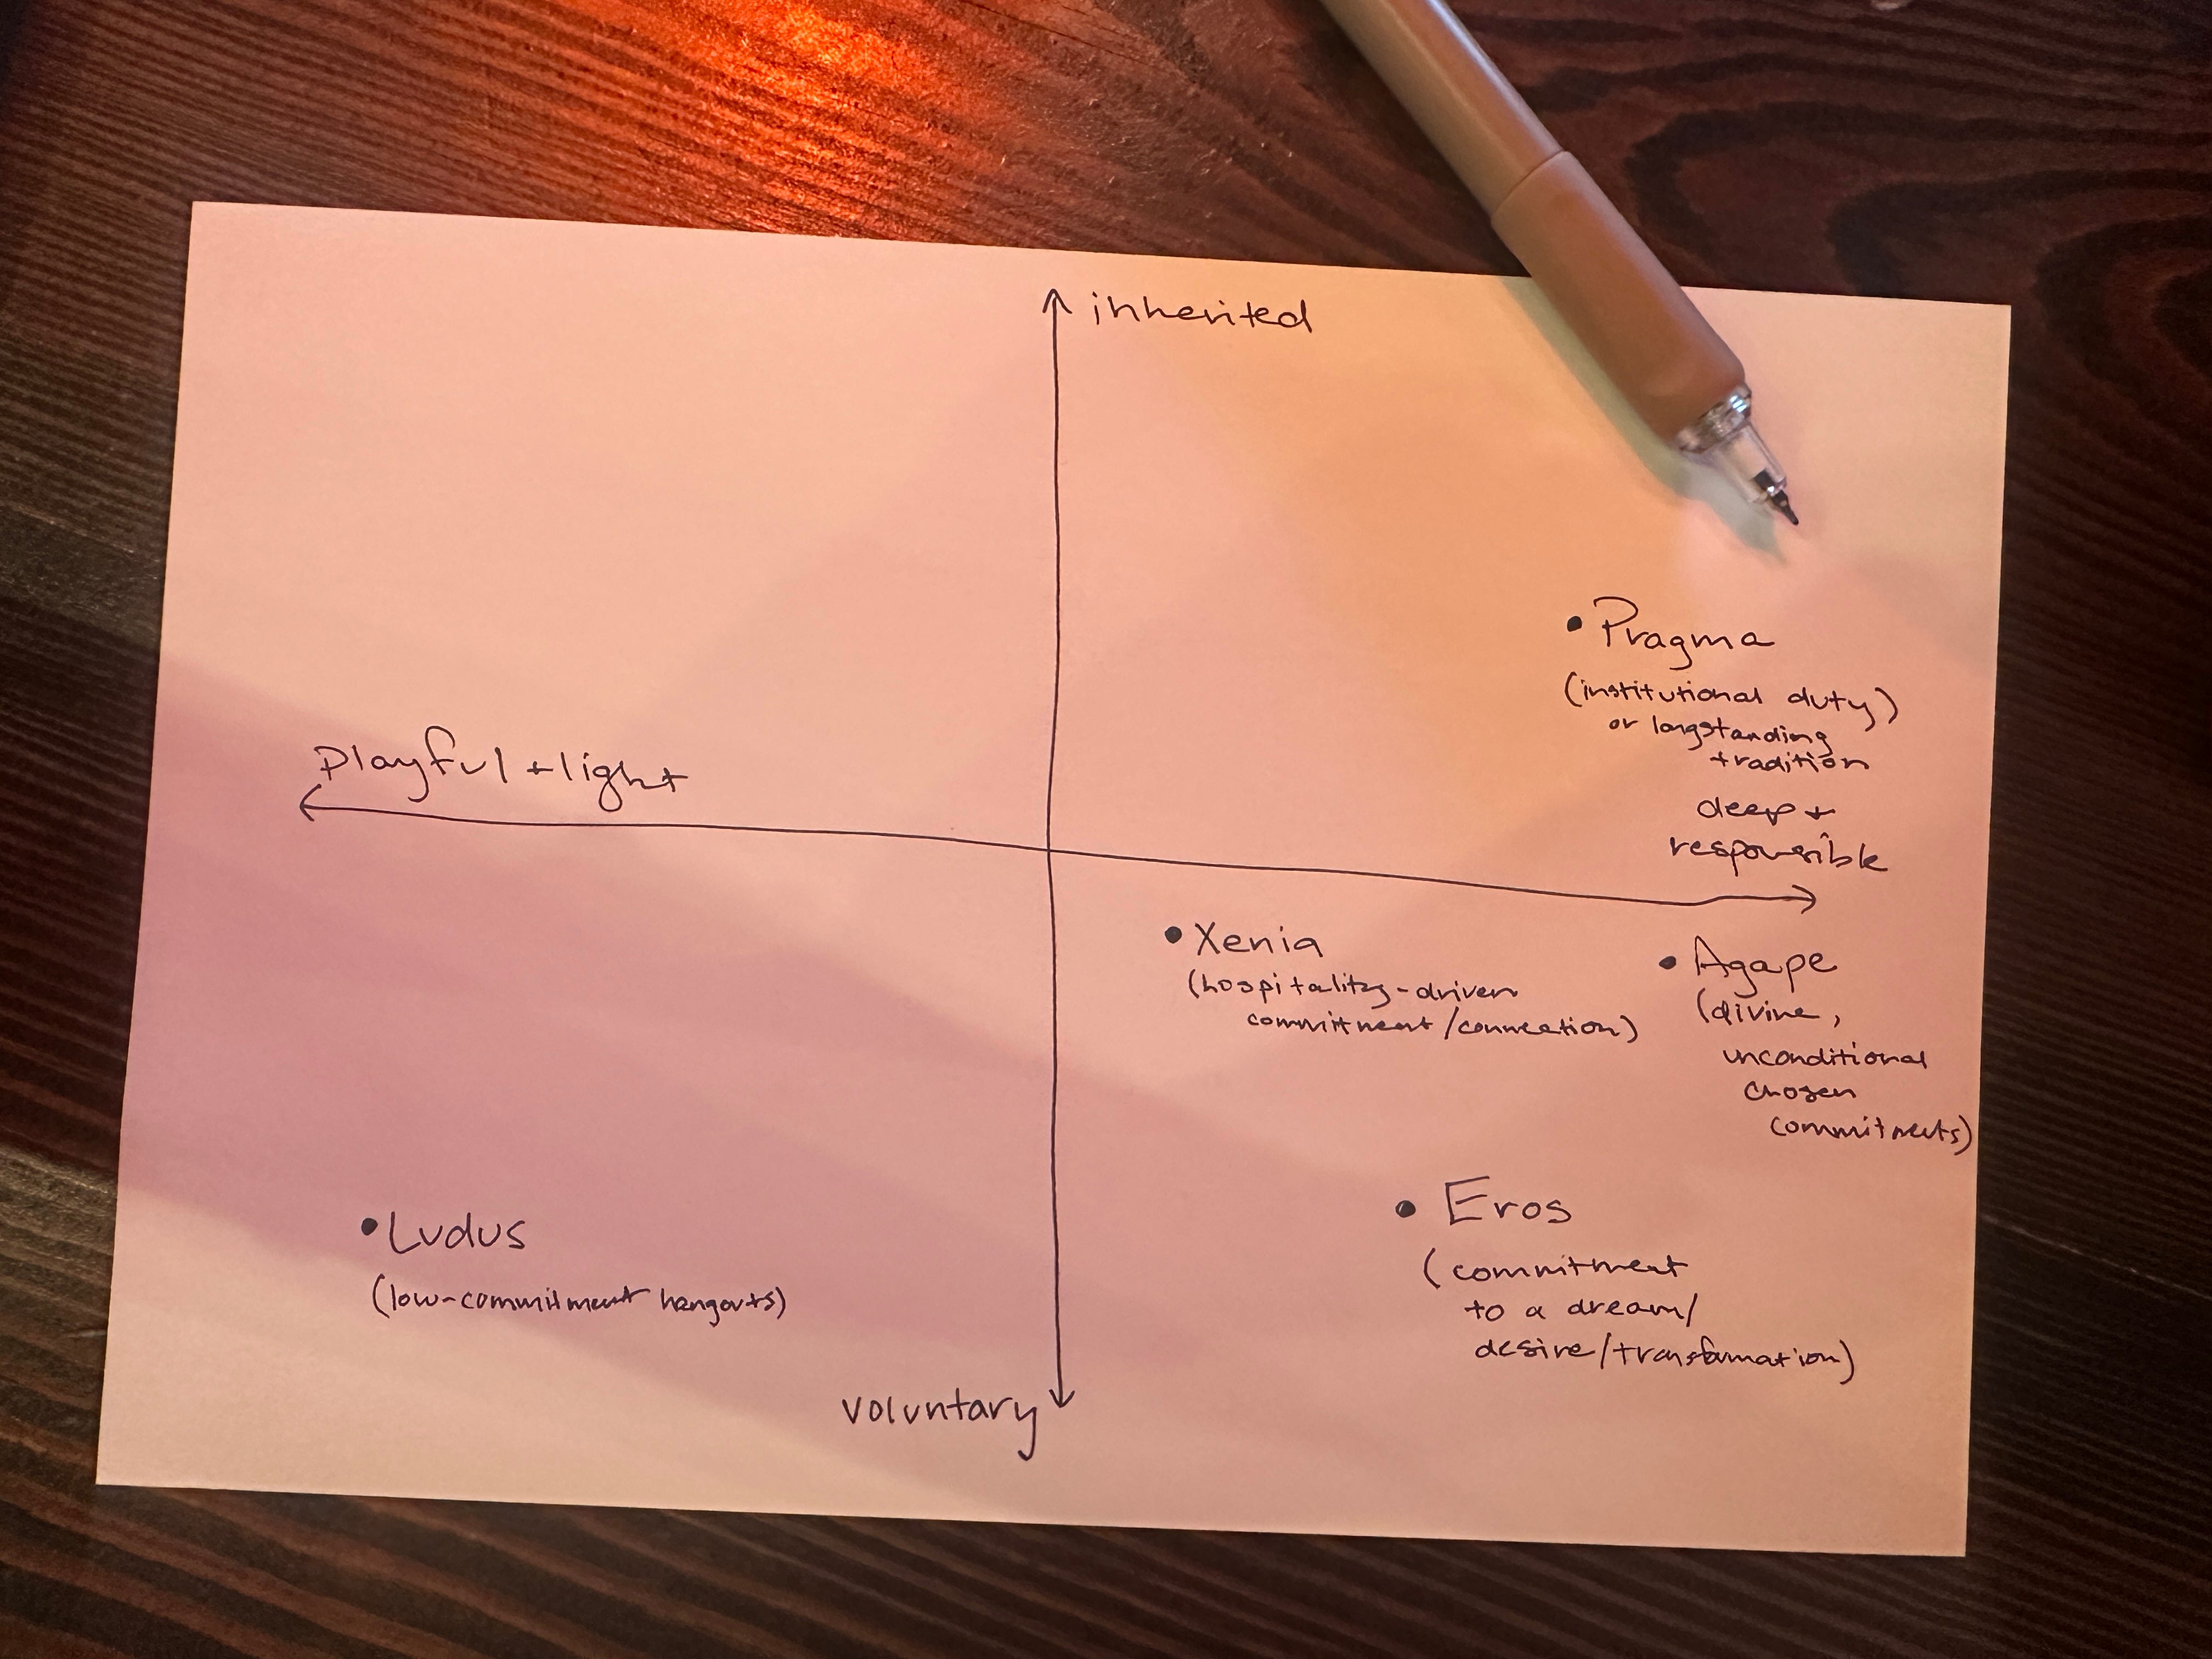 inherited
• Pragma
(institutional duty)
or longstanding
tradition
playful + light
deep +
responsible
• Xenia
(hospitality-driven
commitment/connection)
• Agape
(divine,
unconditional
chosen
commitments)
• Eros
(commitment
to a dream/
desire/transformation)
• Ludus
(low-commitment hangouts)
voluntary